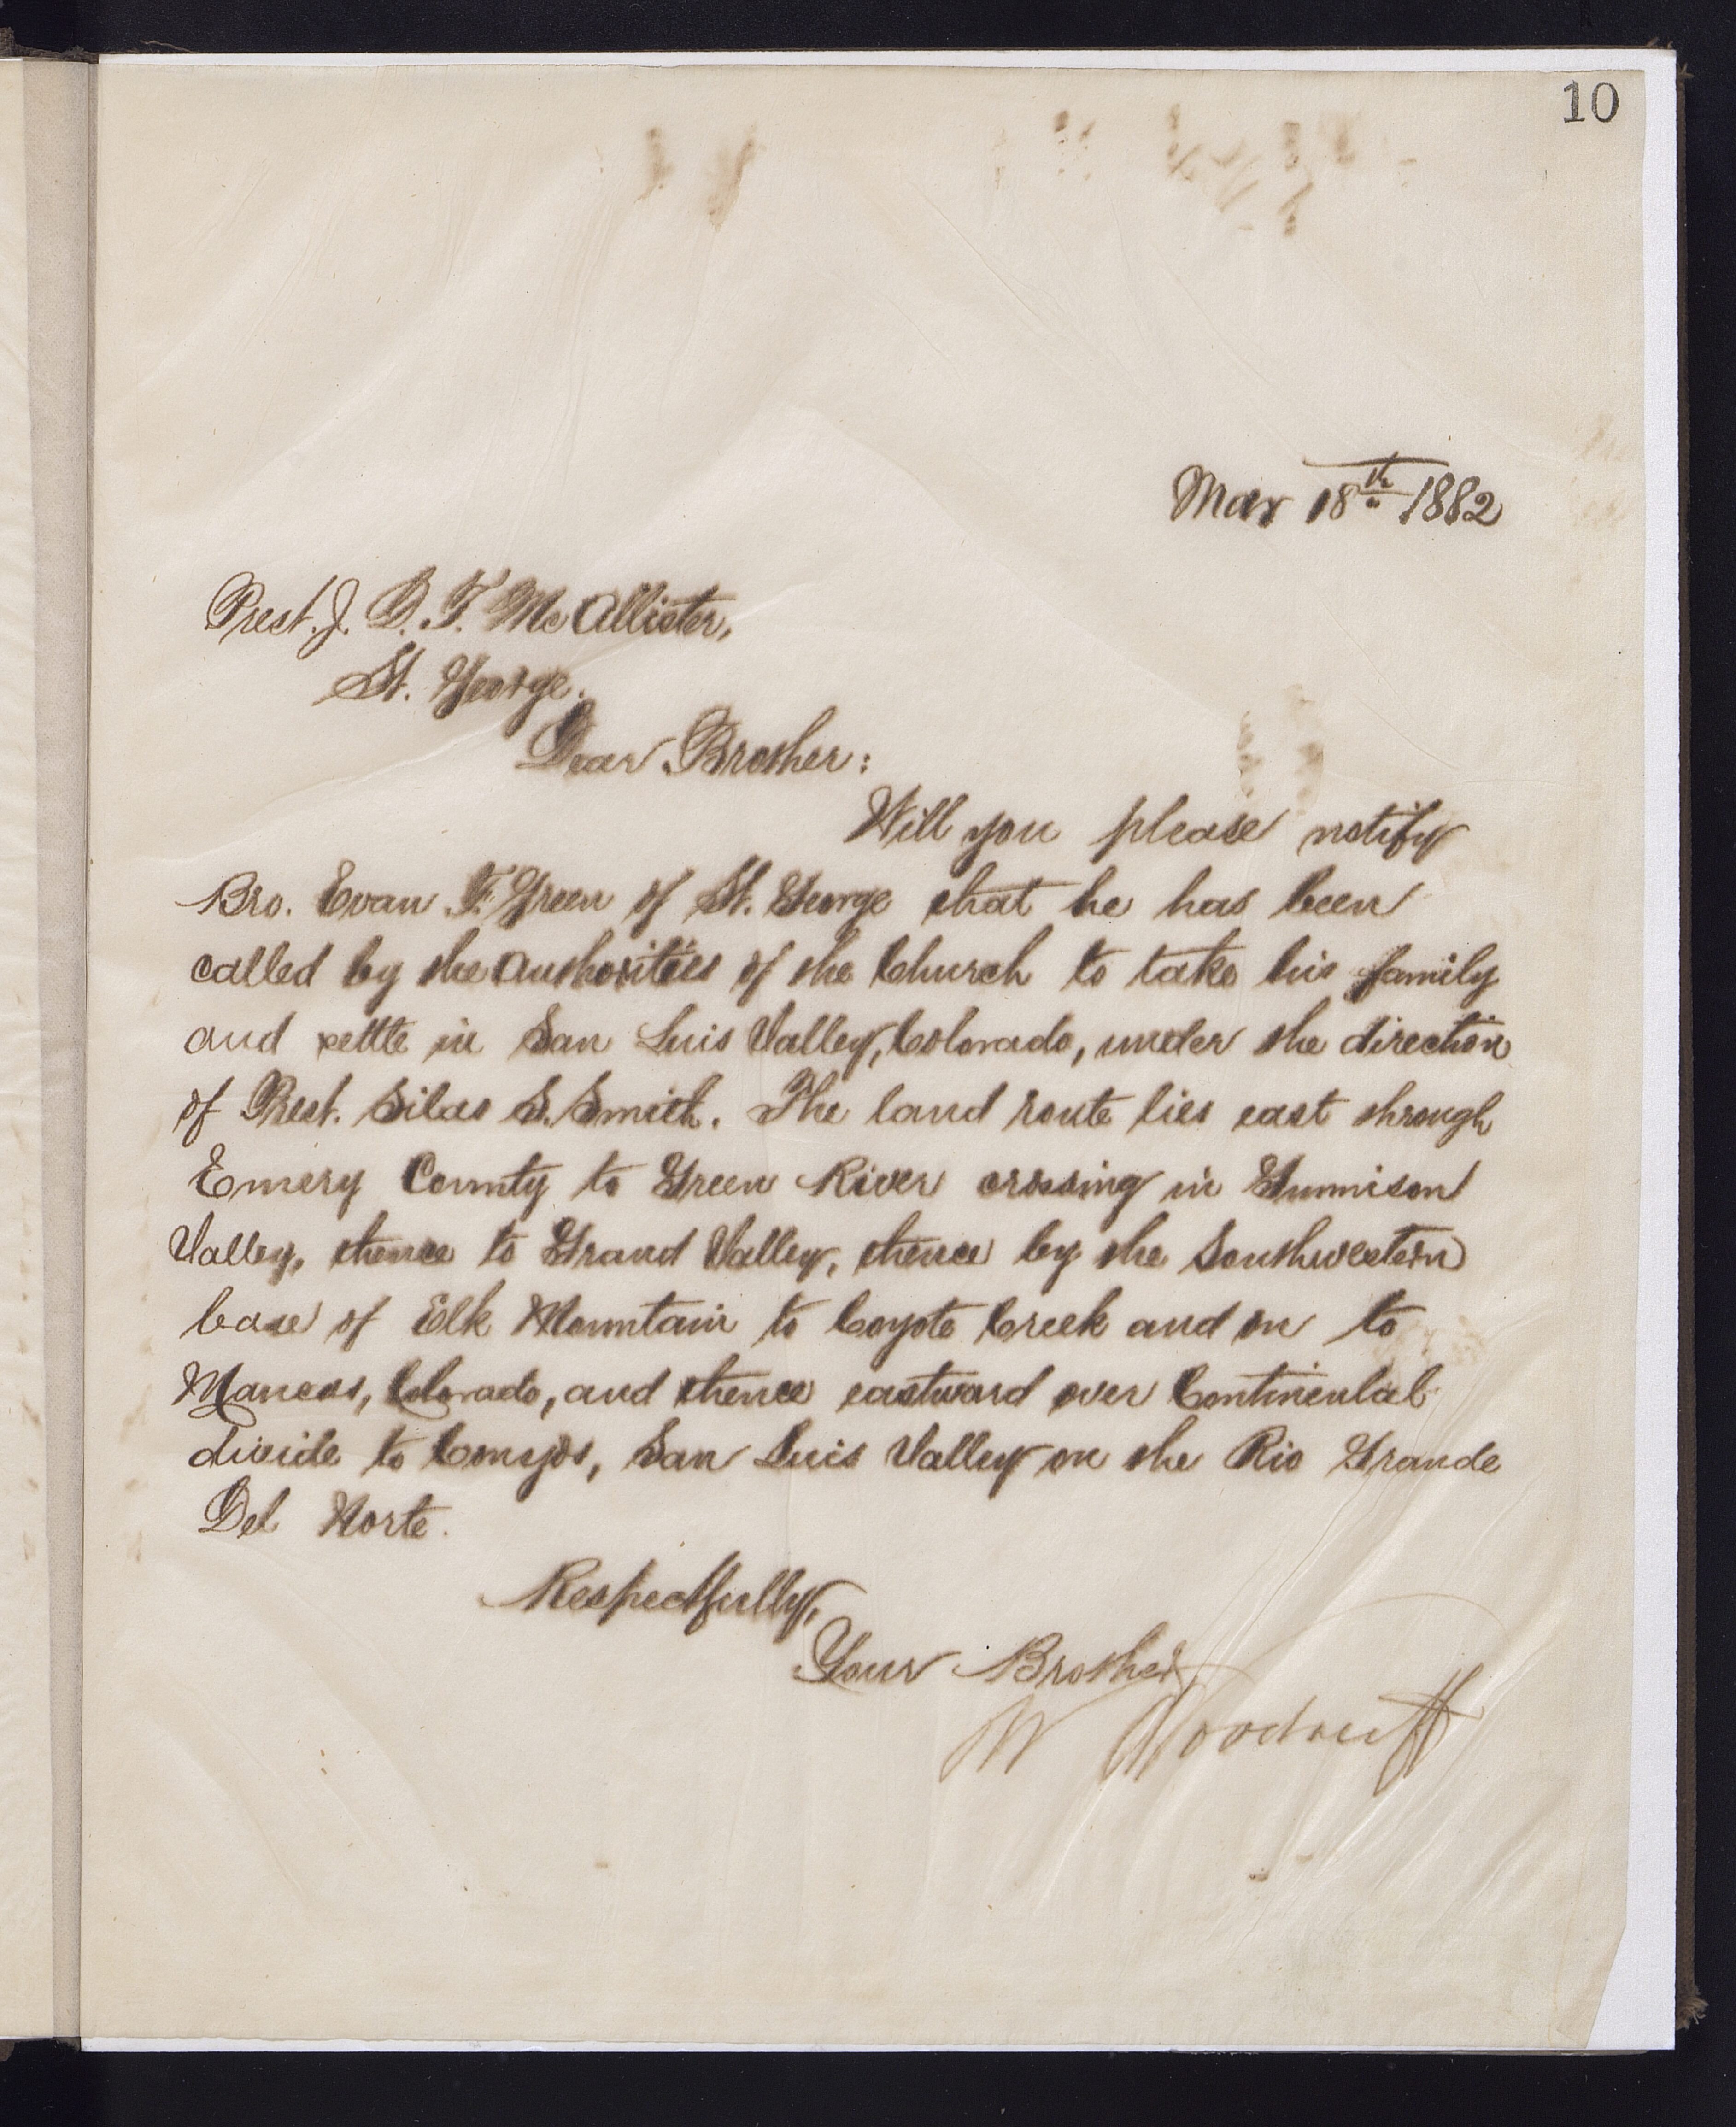 10
Mar 18th 1882
Prest. J. D. T. McAllister,
St. George.
Dear Brother:
Will you please notify
Bro. Evan F. Green of St. George that he has been
called by the Authorities of the Church to take his family
and settle in San Luis Valley, Colorado, under the direction
of Prest. Silas S. Smith. The land route lies east through
Emery County to Green River crossing in Gunnison
Valley, thence to Grand Valley, thence by the Southwestern
base of Elk Mountain to Coyote Creek and on to
Mancos, Colorado, and thence eastward over Continental
divide to Conejos, San Luis Valley on the Rio Grande
Del Norte.
Respectfully,
Your Brother
W Woodruff